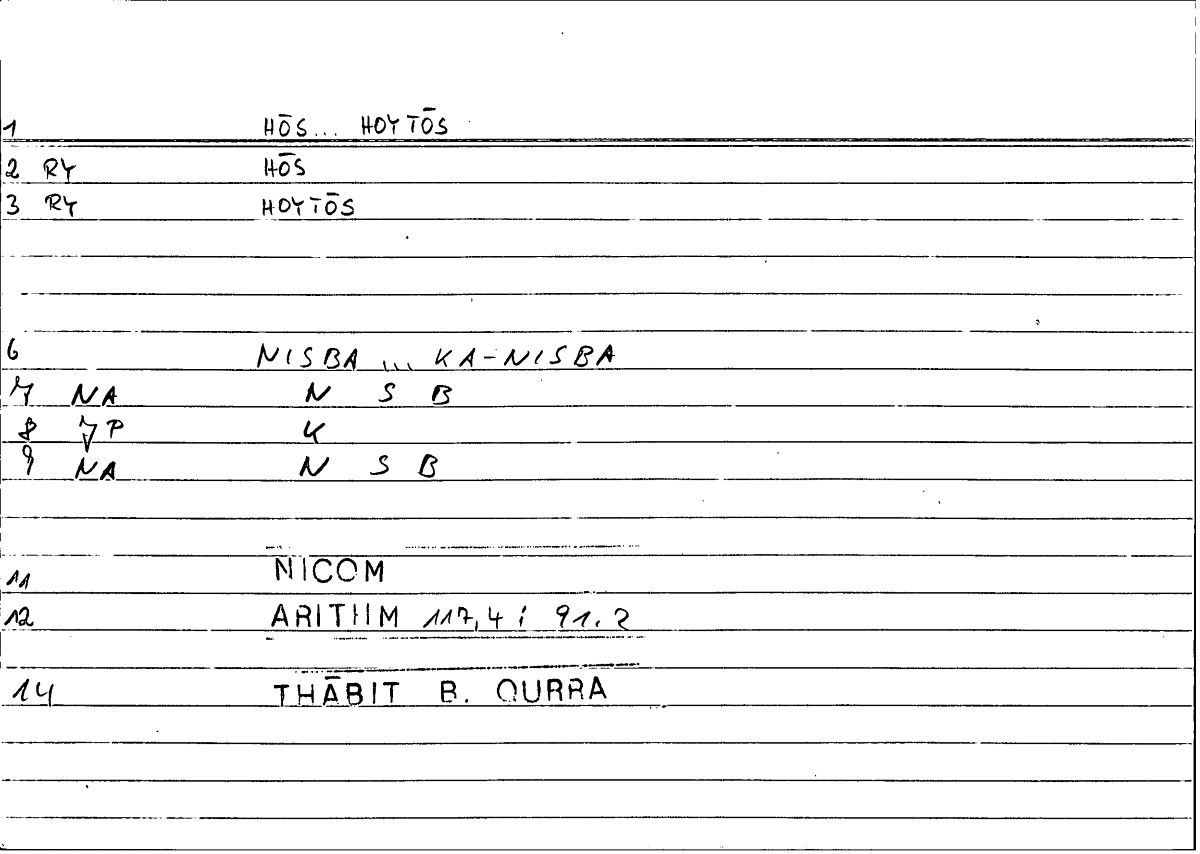 1 HŌS... HOYTŌS
2 RY HŌS
3 RY HOYTŌS
6 NISBA ... KA-NISBA
7 NA N S B
8 7P K
9 NA N S B
11 NICOM
12 ARITHM 117,4; 91.2
14 THĀBIT B. QURRA